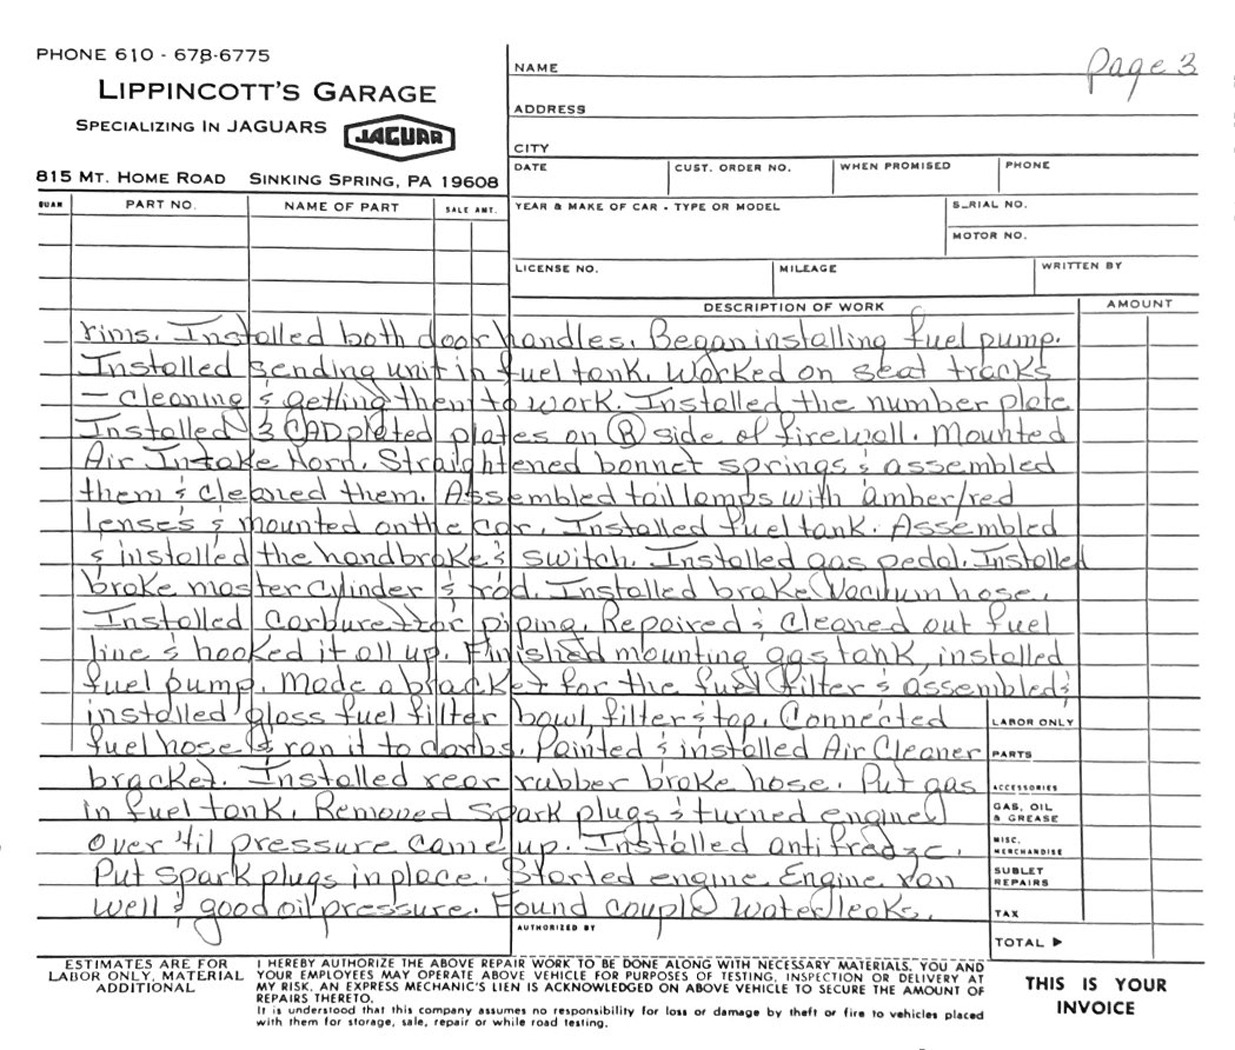 PHONE 610 - 678-6775
LIPPINCOTT'S GARAGE
SPECIALIZING IN JAGUARS
JAGUAR
815 MT. HOME ROAD SINKING SPRING, PA 19608
Page 3
NAME
ADDRESS
CITY
DATE CUST. ORDER NO. WHEN PROMISED PHONE
QUAN PART NO. NAME OF PART SALE AMT.
YEAR & MAKE OF CAR - TYPE OR MODEL SERIAL NO.
MOTOR NO.
LICENSE NO. MILEAGE WRITTEN BY
DESCRIPTION OF WORK AMOUNT
rims. Installed both door handles. Began installing fuel pump.
Installed sending unit in fuel tank. Worked on seat tracks
- cleaning & getting them to work. Installed the number plate
Installed 3 CAD plated plates on Ⓡ side of firewall. Mounted
Air Intake Horn. Straightened bonnet springs & assembled
them & cleaned them. Assembled tail lamps with amber/red
lenses & mounted on the car. Installed fuel tank. Assembled
& installed the handbrake & switch. Installed gas pedal. Installed
brake master cylinder & rod. Installed brake Vacuum hose.
Installed carburettor piping. Repaired & cleaned out fuel
line & hooked it all up. Finished mounting gas tank, installed
fuel pump. Made a bracket for the fuel filter & assembled &
installed glass fuel filter bowl, filter & top. Connected
fuel hose & ran it to carbs. Painted & installed Air Cleaner
bracket. Installed rear rubber brake hose. Put gas
in fuel tank. Removed Spark plugs & turned engine
over 'til pressure came up. Installed antifreeze.
Put spark plugs in place. Started engine. Engine ran
well & good oil pressure. Found couple water leaks.
LABOR ONLY
PARTS
ACCESSORIES
GAS, OIL
& GREASE
MISC.
MERCHANDISE
SUBLET
REPAIRS
TAX
AUTHORIZED BY
TOTAL ►
ESTIMATES ARE FOR
LABOR ONLY, MATERIAL
ADDITIONAL
I HEREBY AUTHORIZE THE ABOVE REPAIR WORK TO BE DONE ALONG WITH NECESSARY MATERIALS. YOU AND
YOUR EMPLOYEES MAY OPERATE ABOVE VEHICLE FOR PURPOSES OF TESTING, INSPECTION OR DELIVERY AT
MY RISK. AN EXPRESS MECHANIC'S LIEN IS ACKNOWLEDGED ON ABOVE VEHICLE TO SECURE THE AMOUNT OF
REPAIRS THERETO.
It is understood that this company assumes no responsibility for loss or damage by theft or fire to vehicles placed
with them for storage, sale, repair or while road testing.
THIS IS YOUR
INVOICE